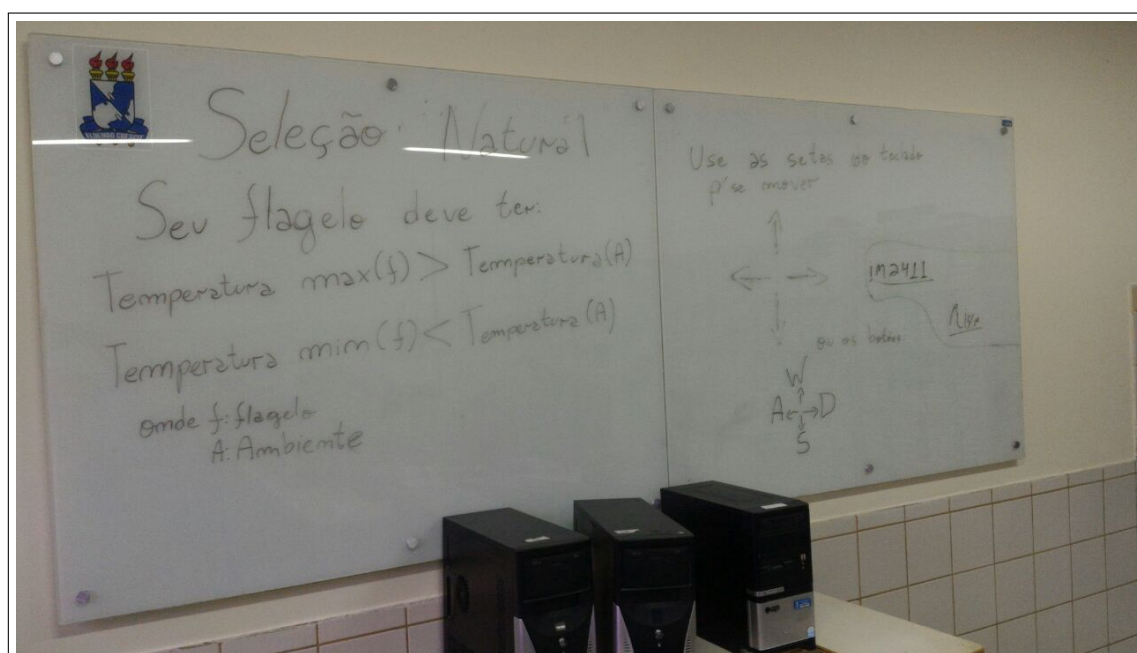 Seleção Natural
Seu flagelo deve ter:
Temperatura max(f) > Temperatura(A)
Temperatura mim(f) < Temperatura(A)
onde f: flagelo
A: Ambiente
Use as setas do teclado
p/ se mover
ou os botoes
W
A D
S